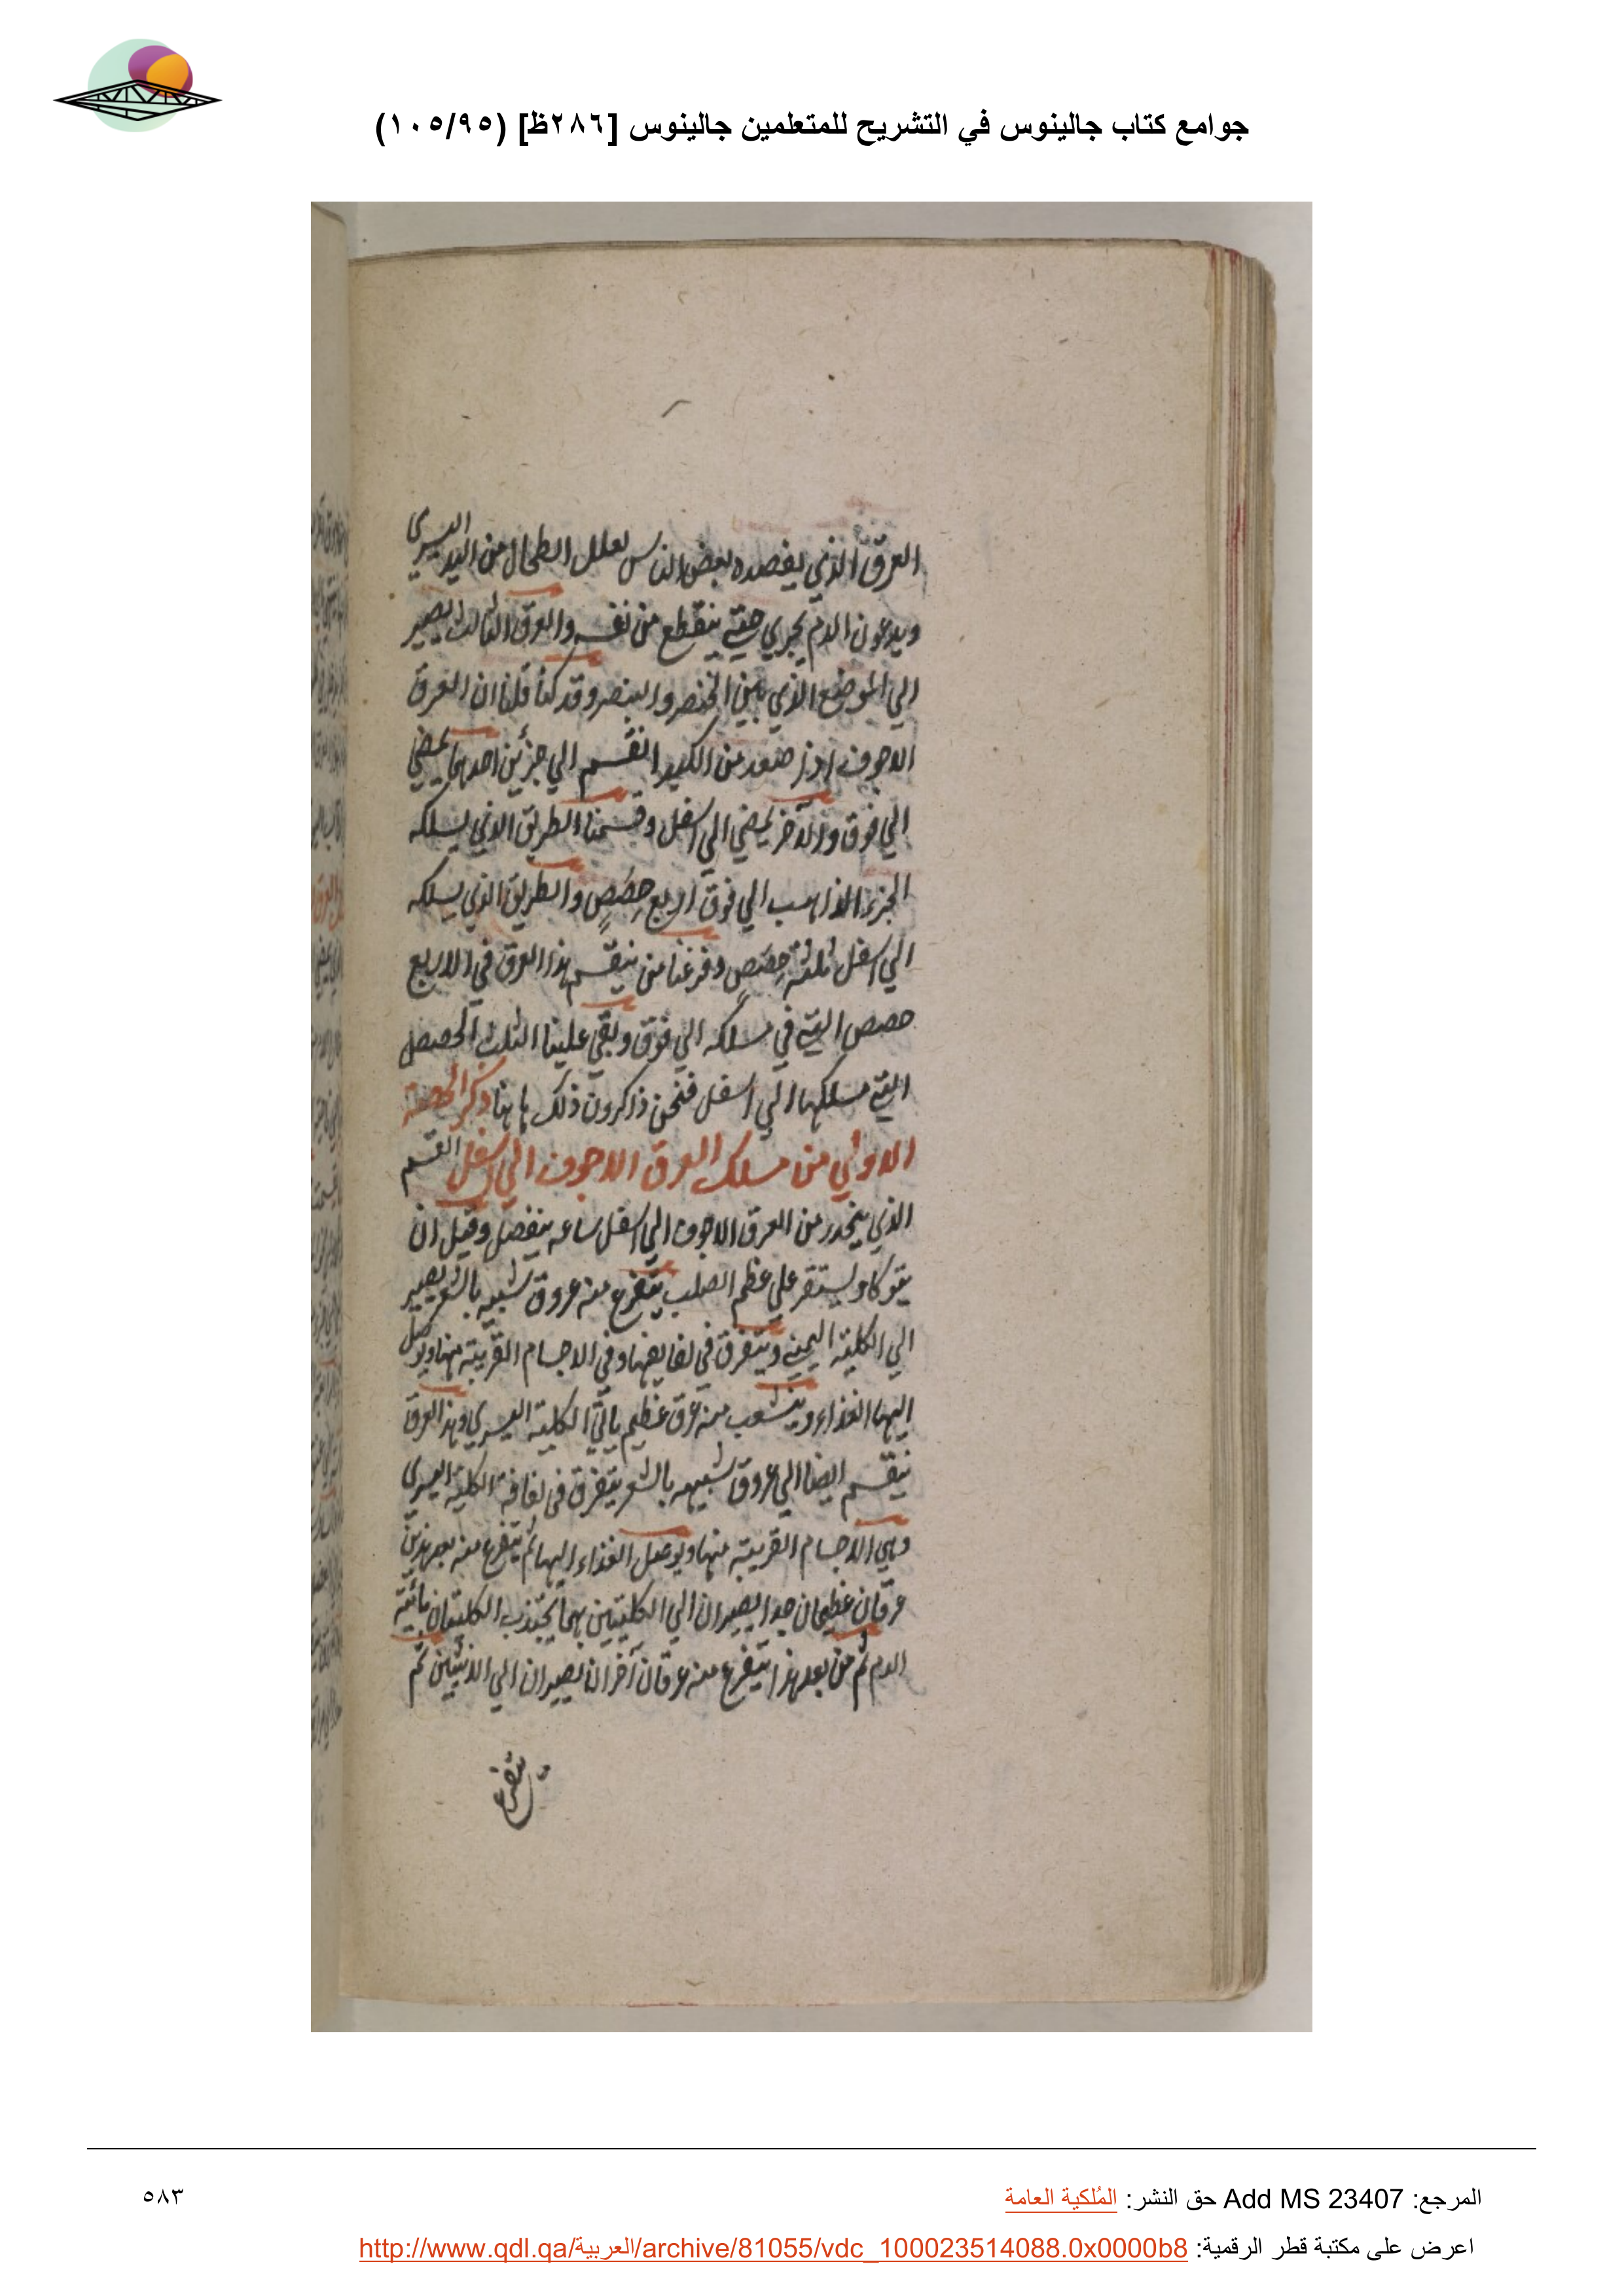 جوامع كتاب جالينوس في التشريح للمتعلمين جالينوس [٢٨٦ظ] (١٠٥/٩٥)
العرق الذي يفصده بعض الناس لعلل الطحال من اليد اليسرى
ويدعون الدم يجري حتى ينقطع من نفسه والعرق الثالث يصير
الي الموضع الذي بين الخنصر والبنصر وقد كنا قلنا ان العرق
الاجوف اذا صعد من الكبد انقسم الي جزئين احدهما يمضي
الي فوق والآخر يمضي الي اسفل وقسمنا الطريق الذي يسلكه
الجزء الذاهب الي فوق اربع حِصَصٍ والطريق الذي يسلكه
الي اسفل ثلثة حِصَصٍ وفرغنا من ينقسم هذا العرق في الاربع
حصص التي في مسلكه الي فوق وبقي علينا الثلث الحصص
التي مسلكها الي اسفل فنحن ذاكرون ذلك هاهنا ذكر الحصة
الاولي من مسلك العرق الاجوف الي اسفل القسم
الذي ينحدر من العرق الاجوف الي اسفل ساعه ينفصل وقبل ان
يتوكا ويستقر علي عظم الصلب يتفرع منه عروق شبيه بالشعر يصير
الي الكلية اليمني ويتفرق في لفايفها وفي الاجسام القريبة منها ويوصل
اليها الغذاء وينشعب منه عرق عظيم ياتي الكلية اليسري وهذا العرق
ينقسم ايضا الي عروق شبيهه بالشعر يتفرق في لفافة الكلية اليسري
وفي الاجسام القريبة منها ويوصل الغذاء اليها ثم يتفرع منه بعد هذين
عرقان عظيمان جدا يصيران الي الكليتين بهما يجتذب الكليتان مائية
الدم ثم من بعد هذا يتفرع منه عرقان آخران يصيران الي الانثيين ثم
يتفرع
المرجع: Add MS 23407 حق النشر: المُلكية العامة
٥٨٣
اعرض على مكتبة قطر الرقمية: http://www.qdl.qa/العربية/archive/81055/vdc_100023514088.0x0000b8